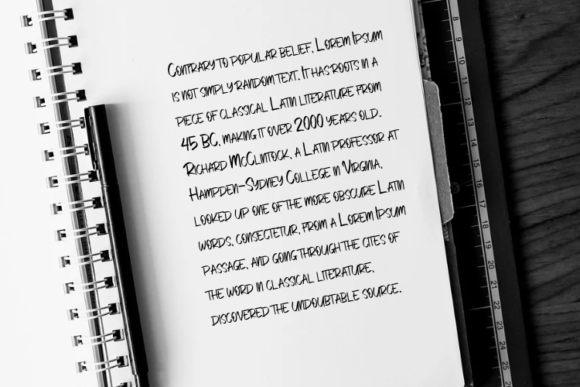 Contrary to popular belief, Lorem Ipsum
is not simply random text. It has roots in a
piece of classical Latin literature from
45 BC, making it over 2000 years old.
Richard McClintock, a Latin professor at
Hampden-Sydney College in Virginia,
looked up one of the more obscure Latin
words, consectetur, from a Lorem Ipsum
passage, and going through the cites of
the word in classical literature,
discovered the undoubtable source.
8
9
10
11
12
13
14
15
16
17
18
19
20
21
22
23
24
25